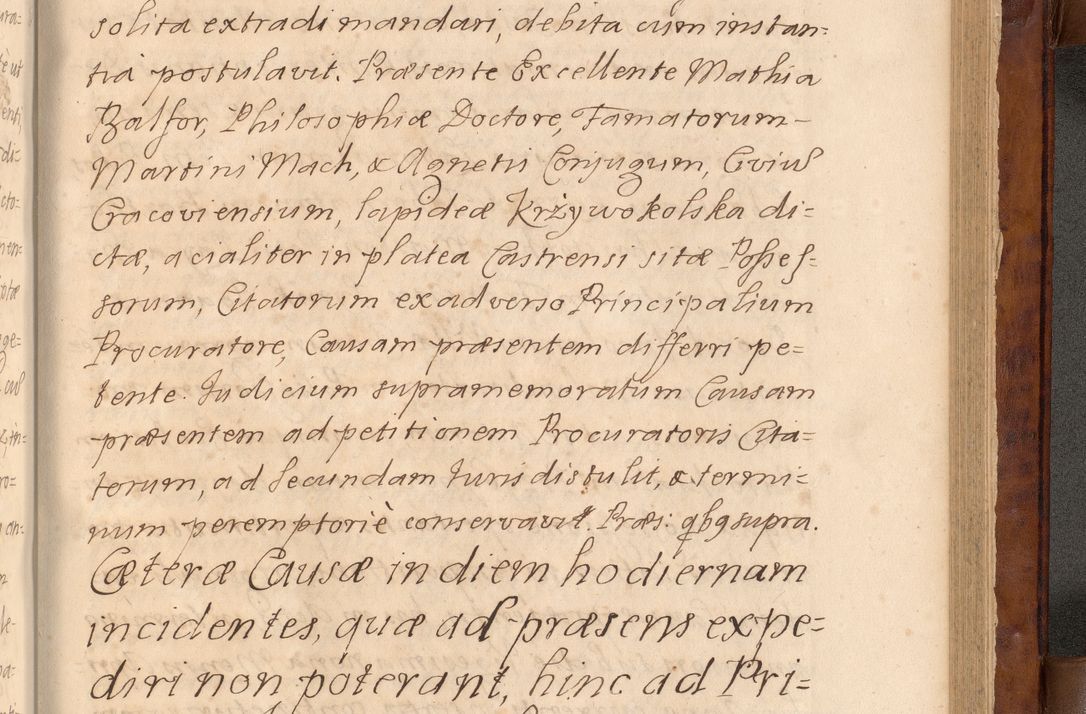 solita extradi mandari, debita cum instan=
tia postulavit. Præsente Excellente Mathia
Balfor, Philosophiæ Doctore, Famatorum-
Martini Mach, & Agnetis Conjugum, Civiũ
Cracoviensium, lapideæ Krżywokolska di=
ctæ, acialiter in platea Castrensi sitæ Posses=
sorum, Citatorum ex adverso Principalium
Procuratore, Causam præsentem differri pe=
tente. Iudicium supramemoratum Causam
præsentem ad petitionem Procuratoris Cita=
torum, ad secundam Iuris distulit, & termi=
num peremptoriè conservavit. Præs: qbg supra.
Cæteræ Causæ in diem hodiernam
incidentes, quæ ad præsens expe=
diri non poterant, hinc ad Pri=